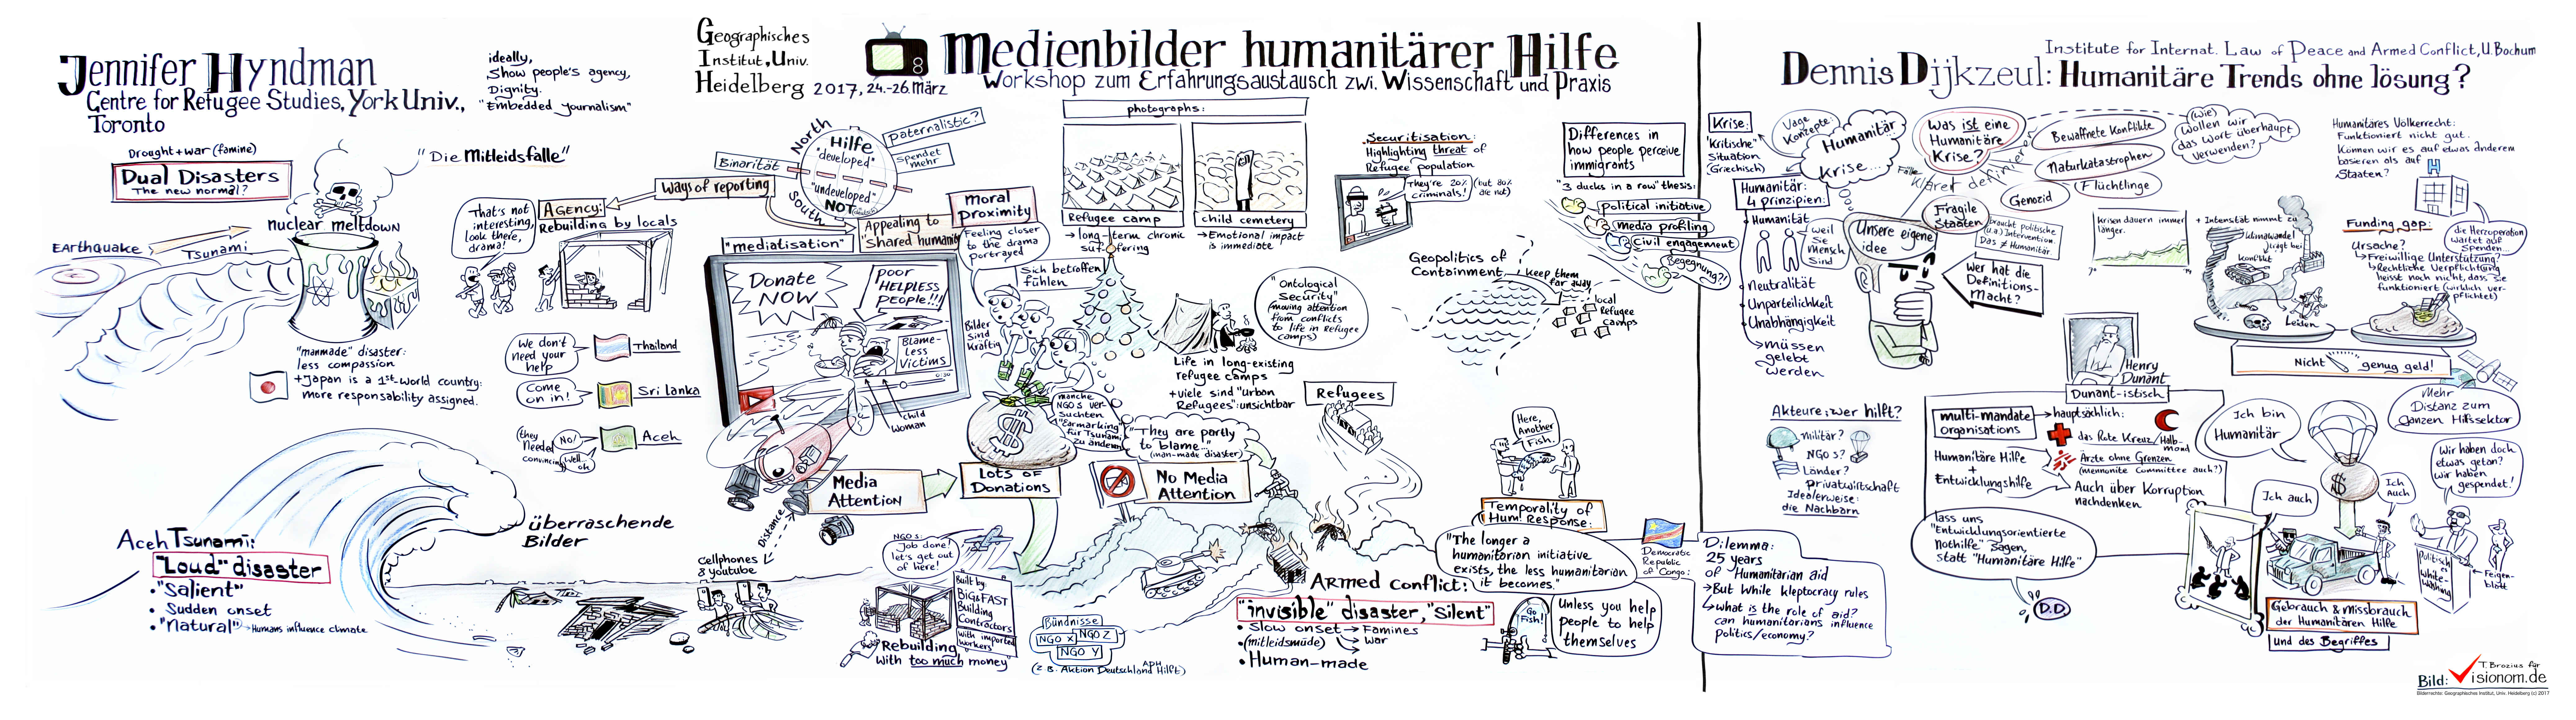 Jennifer Hyndman
Centre for Refugee Studies, York Univ.,
Toronto
ideally,
Show people's agency,
Dignity.
"Embedded journalism"
Geographisches
Institut, Univ.
Heidelberg 2017, 24.-26. März
8
Medienbilder humanitärer Hilfe
Workshop zum Erfahrungsaustausch zwi. Wissenschaft und Praxis
Drought + war (famine)
Dual Disasters
The new normal?
"Die Mitleidsfalle"
nuclear meltdown
Earthquake
Tsunami
"manmade" disaster:
less compassion
+Japan is a 1st-world country:
more responsability assigned.
That's not
interesting,
look there,
drama!
Agency:
Rebuilding by locals
Ways of reporting
We don't
need your
help
Thailand
Come
on in!
Sri Lanka
(they
needed
convincing)
No!
Well..
ok
Aceh
Aceh Tsunami:
"Loud" disaster
• "Salient"
• Sudden onset
• "Natural" → Humans influence climate
überraschende
Bilder
Binarität
North
Hilfe
"developed"
"undeveloped"
NOT
South
paternalistic?
Spendet
mehr
"mediatisation"
Appealing to
"shared humanity"
moral
proximity
Feeling closer
to the drama
portrayed
Sich betroffen
fühlen
Donate
NOW
POOR
HELPLESS
PEOPLE!!!
BLAME-
LESS
VICTIMS
0:30
child
woman
Bilder
sind
kräftig
Media
Attention
Distance
Cellphones
& youtube
Lots of
Donations
manche
NGOs ver-
suchten
"Earmarking"
für Tsunami
zu ändern
"They are partly
to blame..."
(man-made disaster)
No Media
Attention
NGOs:
Job done!
let's get out
of here!
Built by:
BIG&FAST
Building
Contractors
with imported
workers
Rebuilding
with too much money
Bündnisse
NGO X
NGO Z
NGO Y
(z.B. Aktion Deutschland Hilft)
ADH
photographs:
Refugee camp
→ long-term chronic
suffering
child cemetery
→ Emotional impact
is immediate
"Ontological
Security"
(moving attention
from conflicts
to life in Refugee
camps)
Life in long-existing
refugee camps
+viele sind "urban
Refugees": unsichtbar
Refugees
Securitisation:
Highlighting threat of
Refugee population
They're 20%
criminals!
(but 80%
are not)
Geopolitics of
Containment
keep them
far away
local
Refugee
Camps
Differences in
how people perceive
immigrants
"3 ducks in a row" thesis:
political initiative
media profiling
Civil engagement
Begegnung?!
Here,
Another
Fish.
Temporality of
Hum. Response:
"The longer a
humanitarian initiative
exists, the less humanitarian
it becomes."
Armed conflict:
"invisible" disaster, "Silent"
• Slow onset → Famines
• (mitleidsmüde) → War
• Human-made
Go
Fish!
Unless you help
people to help
themselves
Democratic
Republic
of Congo:
Dilemma:
25 years
of Humanitarian aid
→But while kleptocracy rules
↳what is the role of aid?
can humanitarians influence
politics/economy?
Institute for Internat. Law of Peace and Armed Conflict, U. Bochum
Dennis Dijkzeul: Humanitäre Trends ohne lösung?
Krise:
"Kritische"
Situation
(Griechisch)
Vage
Konzepte:
Humanitär
Krise...
Humanitär:
4 prinzipien:
• Humanität
weil
Sie
Mensch
Sind
• Neutralität
• Unparteilichkeit
• Unabhängigkeit
→müssen
gelebt
werden
Was ist eine
Humanitäre
Krise?
Klarer definieren
Bewaffnete Konflikte
Naturkatastrophen
(Flüchtlinge
Genozid
Fragile
Staaten
braucht politische
(u.a.) Intervention.
Das ≠ Humanitär.
(wie)
Wollen wir
das Wort überhaupt
verwenden?
Unsere eigene
idee
Wer hat die
Definitions-
macht?
Humanitäres Völkerrecht:
Funktioniert nicht gut.
Können wir es auf etwas anderem
basieren als auf
Staaten?
H
Krisen dauern immer
länger.
+ Intensität nimmt zu
Klimawandel
trägt bei
Konflikt
Leiden
Funding gap:
Ursache?
↳Freiwillige Unterstützung?
↳Rechtliche Verpflichtung
heisst noch nicht, dass sie
funktioniert (wirklich ver-
pflichtet)
die Herzoperation
wartet auf
Spenden...
Nicht genug geld!
Henry
Dunant
Dunant-istisch
Akteure: wer hilft?
Militär?
NGOs?
Länder?
privatwirtschaft
Idealerweise:
die Nachbarn
multi-mandate
organisations
→hauptsächlich:
das Rote Kreuz/Halb-
mond
Ärzte ohne Grenzen
(mennonite committee auch?)
Humanitäre Hilfe
+
Entwicklungshilfe
Auch über Korruption
nachdenken
lass uns
"Entwicklungsorientierte
Nothilfe" sagen,
statt "Humanitäre Hilfe"
D.D.
Ich bin
Humanitär
Ich auch
Ich
Auch
$
Mehr
Distanz zum
Ganzen Hilfssektor
Wir haben doch
etwas getan?
Wir haben
gespendet!
Politisch
White-
washing
Feigen-
blatt
Gebrauch & Missbrauch
der Humanitären Hilfe
und des Begriffes
Bild: Visionom.de
T. Brozius für
Bilderrechte: Geographisches Institut, Univ. Heidelberg (c) 2017